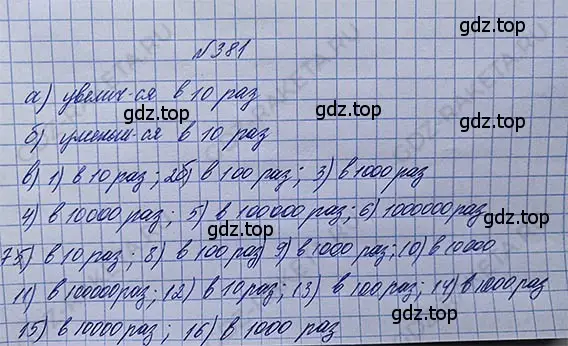 №381
а) увелич-ся в 10 раз
б) уменьш-ся в 10 раз
в) 1) в 10 раз; 2б) в 100 раз; 3) в 1000 раз
4) в 10000 раз; 5) в 100000 раз; 6) 1000000 раз
7б) в 10 раз; 8) в 100 раз 9) в 1000 раз; 10) в 10000
11) в 100000 раз; 12) в 10 раз; 13) в 100 раз; 14) в 1000 раз
15) в 10000 раз; 16) в 1000 раз
gdz.top
gdz.top
gdz.top
gdz.top
gdz.top
gdz.top
gdz.top
gdz.top